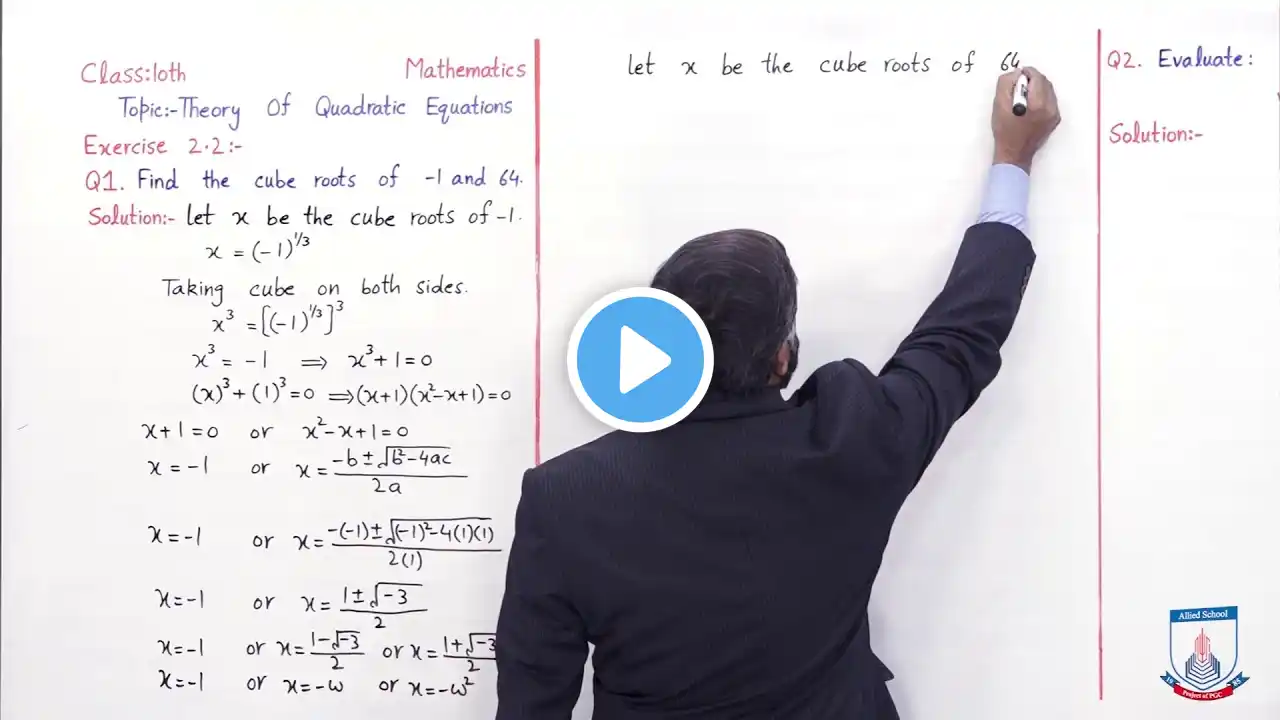 Class:10th Mathematics
Topic:-Theory Of Quadratic Equations
Exercise 2.2:-
Q1. Find the cube roots of -1 and 64.
Solution:- let x be the cube roots of -1.
x = (-1)^1/3
Taking cube on both sides.
x³ = [(-1)^1/3]³
x³ = -1 ⟹ x³+1=0
(x)³+(1)³=0 ⟹(x+1)(x²-x+1)=0
x+1=0 or x²-x+1=0
x=-1 or x= -b±√b²-4ac / 2a
x=-1 or x= -(-1)±√(-1)²-4(1)(1) / 2(1)
x=-1 or x= 1±√-3 / 2
x=-1 or x= 1-√-3 / 2 or x= 1+√-3 / 2
x=-1 or x=-ω or x=-ω²
let x be the cube roots of 64
Q2. Evaluate:
Solution:-
Allied School
19 85
Project of PGC